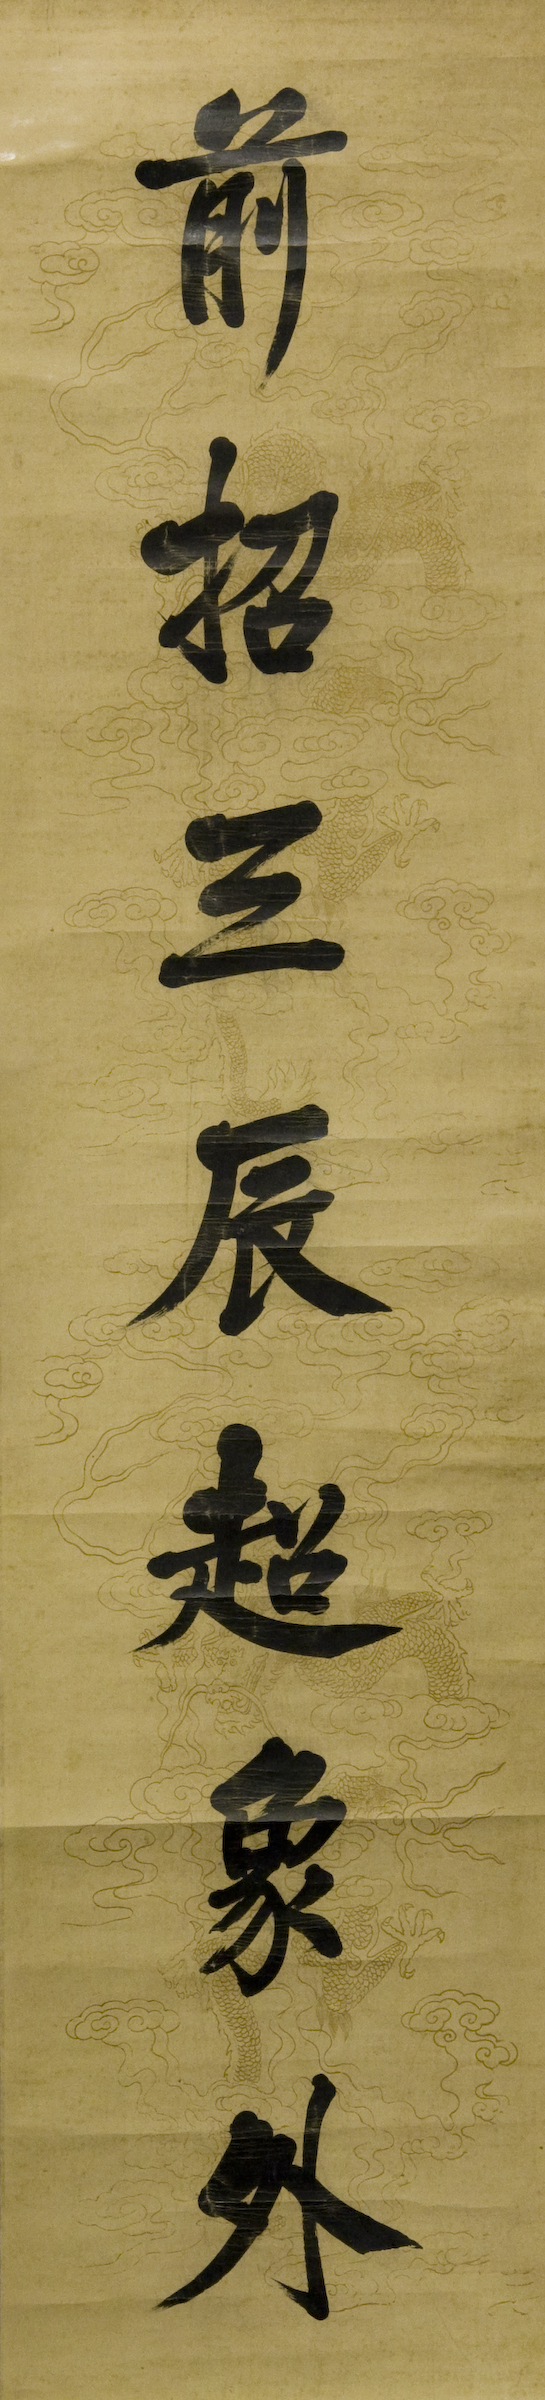 前招三辰超象外